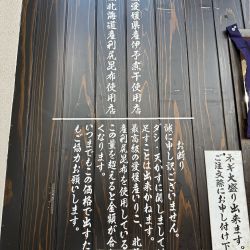 ネギ大盛り出来ます。
ご注文際にお申し付け下
愛媛県産伊予煮干使用店
北海道産利尻昆布使用店
お断り
誠に申し訳ございません。
ダシ・天かすに関しまして、
足すことは出来かねます。
最高級の愛媛産いりこ、北
産利尻昆布を使用している
この量を超えると金額が合
くなります。
いつまでもこの価格で出すた
もご協力お願いします。